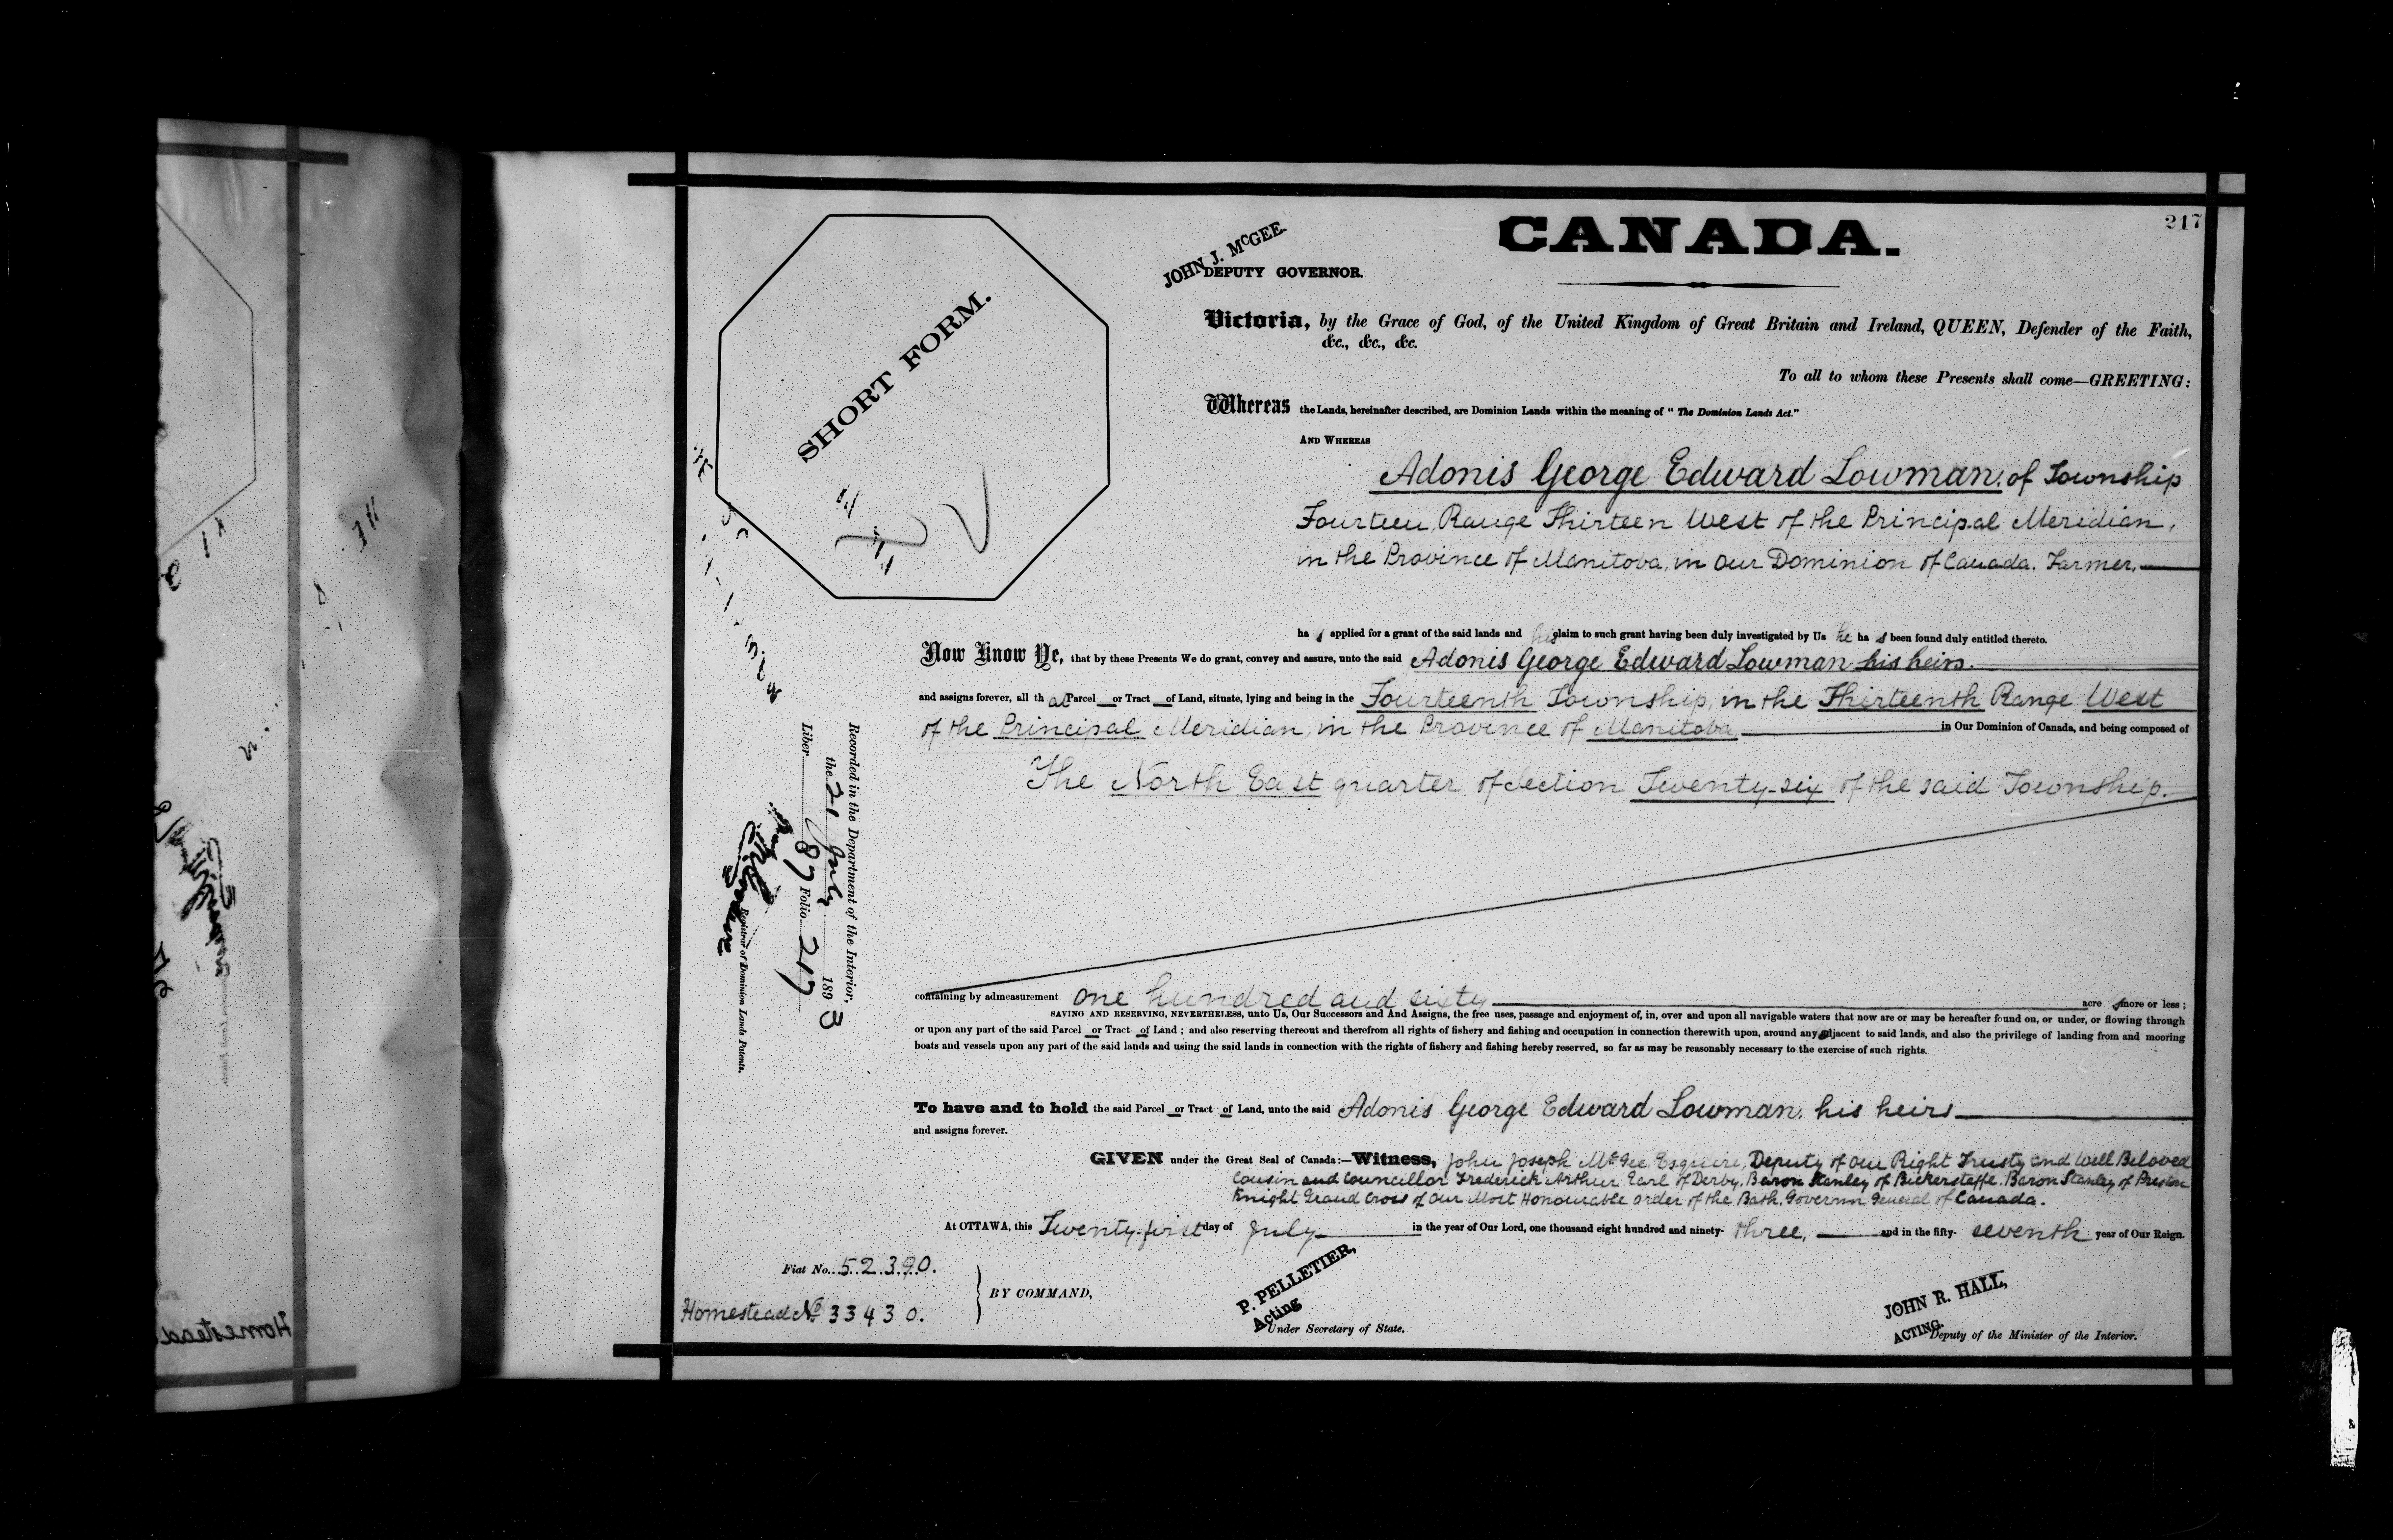 217
CANADA.
JOHN J. McGEE.
DEPUTY GOVERNOR.
SHORT FORM.
Victoria, by the Grace of God, of the United Kingdom of Great Britain and Ireland, QUEEN, Defender of the Faith,
&c., &c., &c.
To all to whom these Presents shall come—GREETING:
Whereas the Lands, hereinafter described, are Dominion Lands within the meaning of "The Dominion Lands Act."
AND WHEREAS
Adonis George Edward Lowman, of Township
Fourteen, Range Thirteen West of the Principal Meridian,
in the Province of Manitoba, in Our Dominion of Canada. Farmer,
has applied for a grant of the said lands and his claim to such grant having been duly investigated by Us he has been found duly entitled thereto.
Now Know Ye, that by these Presents We do grant, convey and assure, unto the said Adonis George Edward Lowman his heirs
and assigns forever, all that Parcel or Tract of Land, situate, lying and being in the Fourteenth Township, in the Thirteenth Range West
of the Principal Meridian, in the Province of Manitoba, in Our Dominion of Canada, and being composed of
The North East quarter of Section Twenty-six of the said Township.
containing by admeasurement one hundred and sixty acres more or less;
SAVING AND RESERVING, NEVERTHELESS, unto Us, Our Successors and And Assigns, the free uses, passage and enjoyment of, in, over and upon all navigable waters that now are or may be hereafter found on, or under, or flowing through
or upon any part of the said Parcel or Tract of Land; and also reserving thereout and therefrom all rights of fishery and fishing and occupation in connection therewith upon, around any adjacent to said lands, and also the privilege of landing from and mooring
boats and vessels upon any part of the said lands and using the said lands in connection with the rights of fishery and fishing hereby reserved, so far as may be reasonably necessary to the exercise of such rights.
To have and to hold the said Parcel or Tract of Land, unto the said Adonis George Edward Lowman, his heirs
and assigns forever.
GIVEN under the Great Seal of Canada:—Witness, John Joseph McGee Esquire, Deputy of Our Right Trusty and Well Beloved
Cousin and Councillor Frederick Arthur Earl of Derby, Baron Stanley of Bickerstaffe. Baron Stanley of Preston
Knight Grand Cross of Our Most Honourable Order of the Bath. Governor General of Canada.
At OTTAWA, this Twenty-first day of July in the year of Our Lord, one thousand eight hundred and ninety-three, and in the fifty-seventh year of Our Reign.
Fiat No. 52390.
Homestead No 33430.
BY COMMAND,
P. PELLETIER,
Acting
Under Secretary of State.
JOHN R. HALL,
ACTING.
Deputy of the Minister of the Interior.
Recorded in the Department of the Interior,
the 21 July 1893
Liber 87 Folio 217
Registrar of Dominion Lands Patents.
Homestead